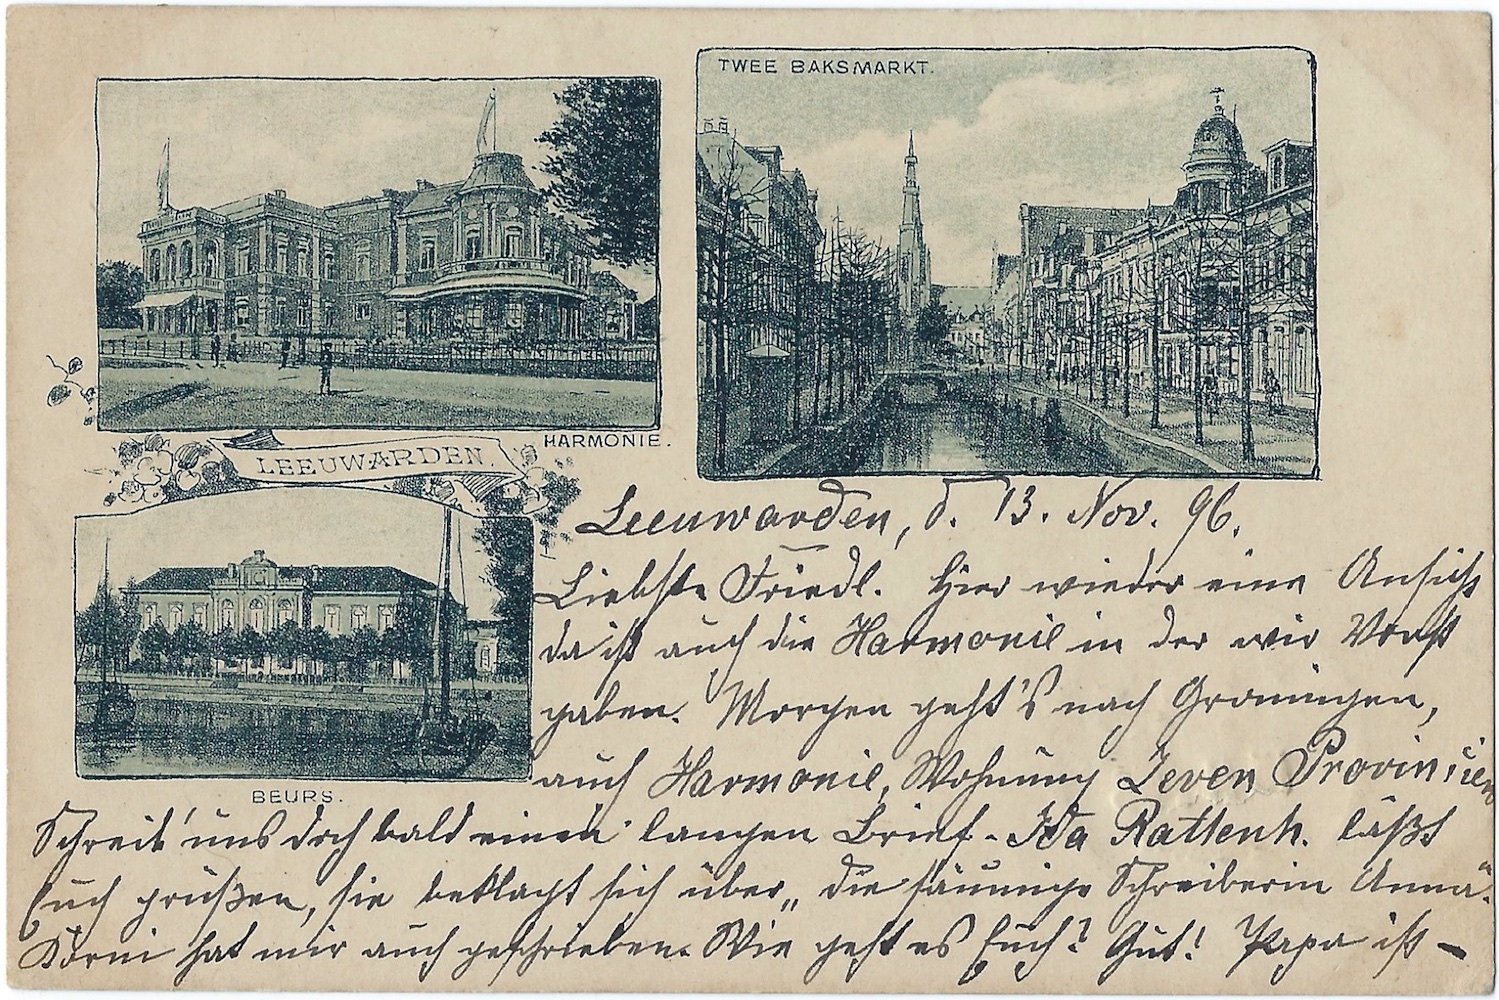 TWEE BAKSMARKT.
HARMONIE.
LEEUWARDEN.
BEURS.
Leeuwarden, d. 13. Nov. 96.
Liebste Friedl. Hier wieder eine Ansicht
da ist auch die Harmonie in der wir Vorst
gaben. Morgen geht's nach Groningen,
auch Harmonie, Wohnung Zeven Provincien
Schreib' uns doch bald einen langen Brief - Ida Rattenh. läßt
Euch grüßen, sie beklagt sich über „die säumige Schreiberin Anna".
hat mir auch geschrieben. Wie geht es Euch? Gut! Papa ist -